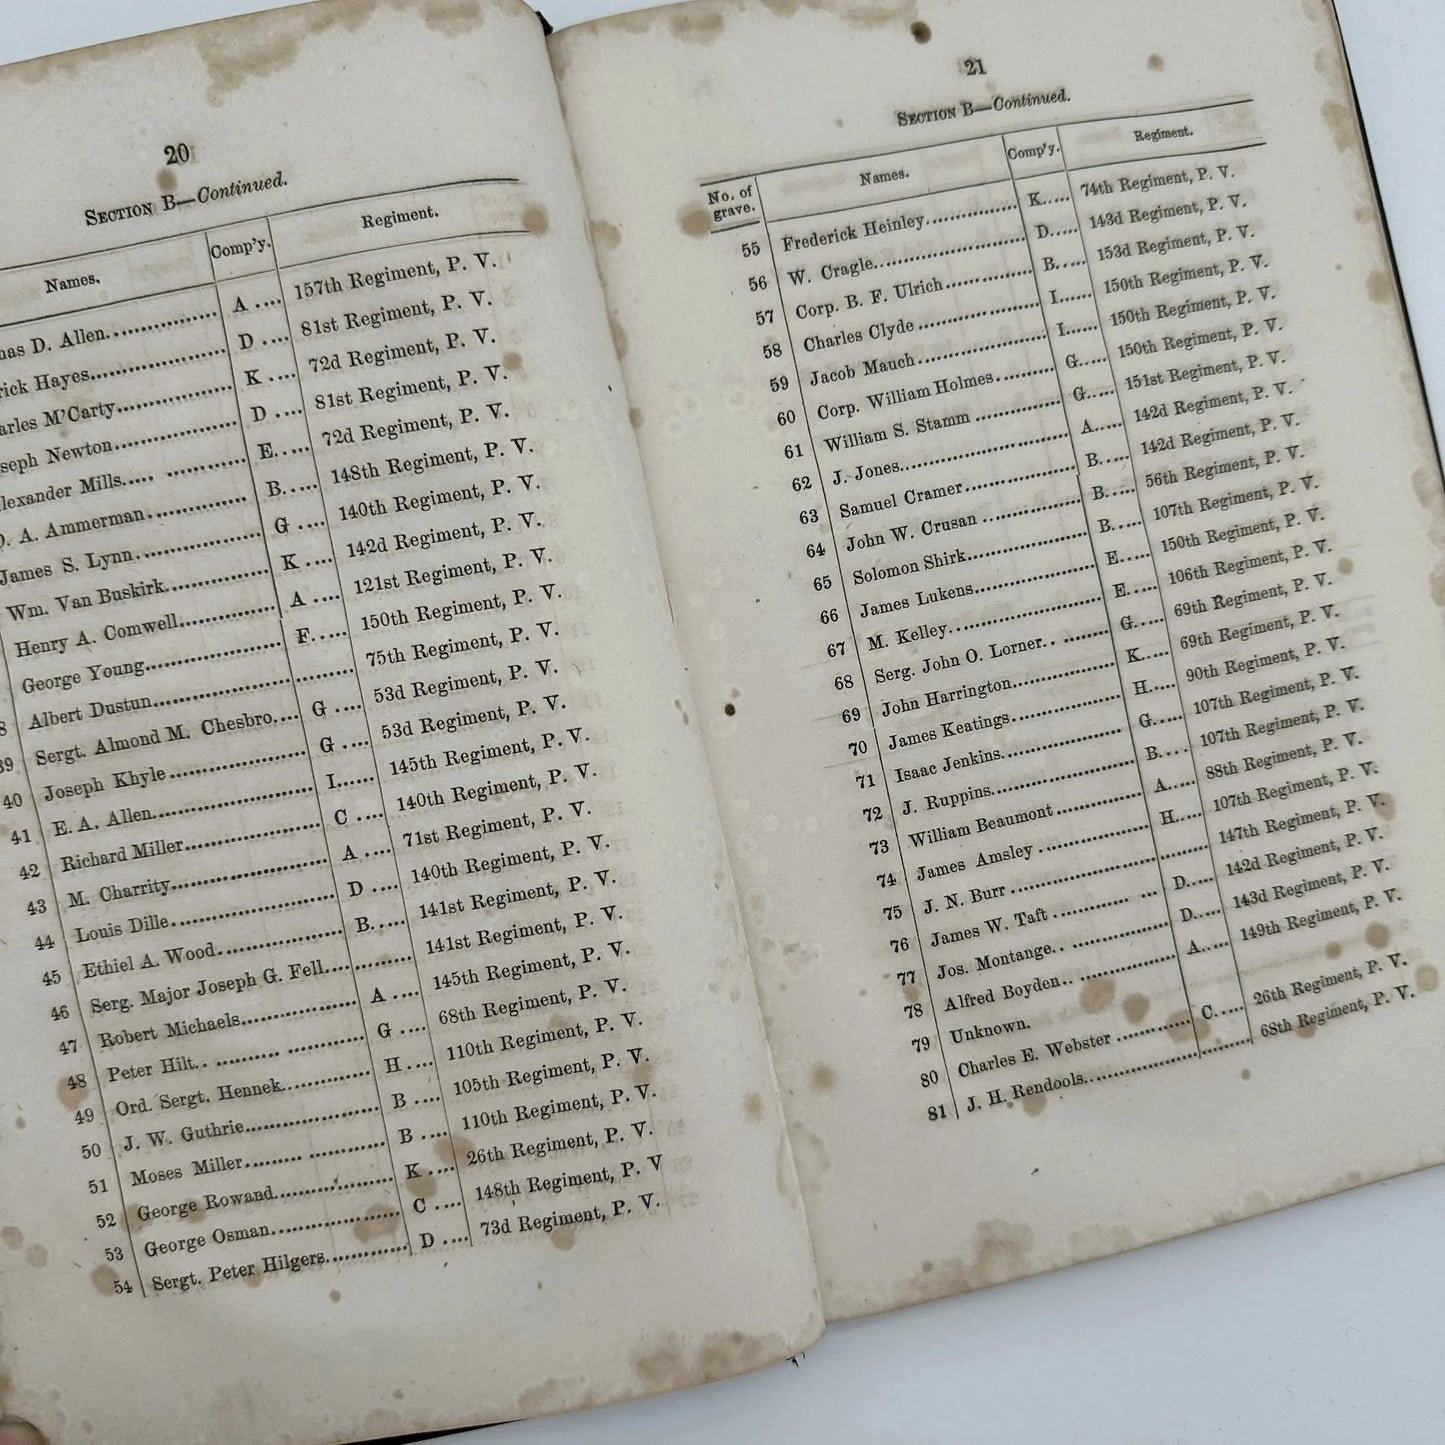 20
SECTION B—Continued.
Names. Comp'y. Regiment.
D. Allen................ A .... 157th Regiment, P. V.
Hayes.................... D .... 81st Regiment, P. V.
M'Carty................ K .... 72d Regiment, P. V.
Newton................... D .... 81st Regiment, P. V.
Mills..... ............ E..... 72d Regiment, P. V.
A. Ammerman............... B..... 148th Regiment, P. V.
James S. Lynn................... G .... 140th Regiment, P. V.
Wm. Van Buskirk............... K .... 142d Regiment, P. V.
Henry A. Comwell.............. A .... 121st Regiment, P. V.
George Young.................... F..... 150th Regiment, P. V.
Albert Dustun............................. 75th Regiment, P. V.
39 Sergt. Almond M. Chesbro.... G .... 53d Regiment, P. V.
40 Joseph Khyle .................... G .... 53d Regiment, P. V.
41 E. A. Allen....................... I...... 145th Regiment, P. V.
42 Richard Miller.................... C .... 140th Regiment, P. V.
43 M. Charrity....................... A .... 71st Regiment, P. V.
44 Louis Dille....................... D .... 140th Regiment, P. V.
45 Ethiel A. Wood.................. B..... 141st Regiment, P. V.
46 Serg. Major Joseph G. Fell............. 141st Regiment, P. V.
47 Robert Michaels................ A .... 145th Regiment, P. V.
48 Peter Hilt.. ......... ........... G .... 68th Regiment, P. V.
49 Ord. Sergt. Hennek............ H.... 110th Regiment, P. V.
50 J. W. Guthrie................... B .... 105th Regiment, P. V.
51 Moses Miller......... ........... B .... 110th Regiment, P. V.
52 George Rowand................. K .... 26th Regiment, P. V.
53 George Osman................... C .... 148th Regiment, P. V
54 Sergt. Peter Hilgers............ D .... 73d Regiment, P. V.
21
SECTION B—Continued.
No. of grave. Names. Comp'y. Regiment.
55 Frederick Heinley............. K..... 74th Regiment, P. V.
56 W. Cragle...................... D..... 143d Regiment, P. V.
57 Corp. B. F. Ulrich............. B..... 153d Regiment, P. V.
58 Charles Clyde .................. I...... 150th Regiment, P. V.
59 Jacob Mauch ................... I...... 150th Regiment, P. V.
60 Corp. William Holmes......... G..... 150th Regiment, P. V.
61 William S. Stamm ............. G..... 151st Regiment, P. V.
62 J. Jones......................... A..... 142d Regiment, P. V.
63 Samuel Cramer................. B..... 142d Regiment, P. V.
64 John W. Crusan ............... B..... 56th Regiment, P. V.
65 Solomon Shirk.................. B..... 107th Regiment, P. V.
66 James Lukens................... E..... 150th Regiment, P. V.
67 M. Kelley....................... E..... 106th Regiment, P. V.
68 Serg. John O. Lorner.. ........ G..... 69th Regiment, P. V.
69 John Harrington............... K..... 69th Regiment, P. V.
70 James Keatings................. H..... 90th Regiment, P. V.
71 Isaac Jenkins................... G..... 107th Regiment, P. V.
72 J. Ruppins...................... B.... 107th Regiment, P. V.
73 William Beaumont ............ A..... 88th Regiment, P. V.
74 James Amsley ................. H..... 107th Regiment, P. V.
75 J. N. Burr ............................ 147th Regiment, P. V.
76 James W. Taft ............ ... D..... 142d Regiment, P. V.
77 Jos. Montange.. ............... D..... 143d Regiment, P. V.
78 Alfred Boyden.. ............... A..... 149th Regiment, P. V.
79 Unknown.
80 Charles E. Webster ........... C..... 26th Regiment, P. V.
81 J. H. Rendools......................... 68th Regiment, P. V.